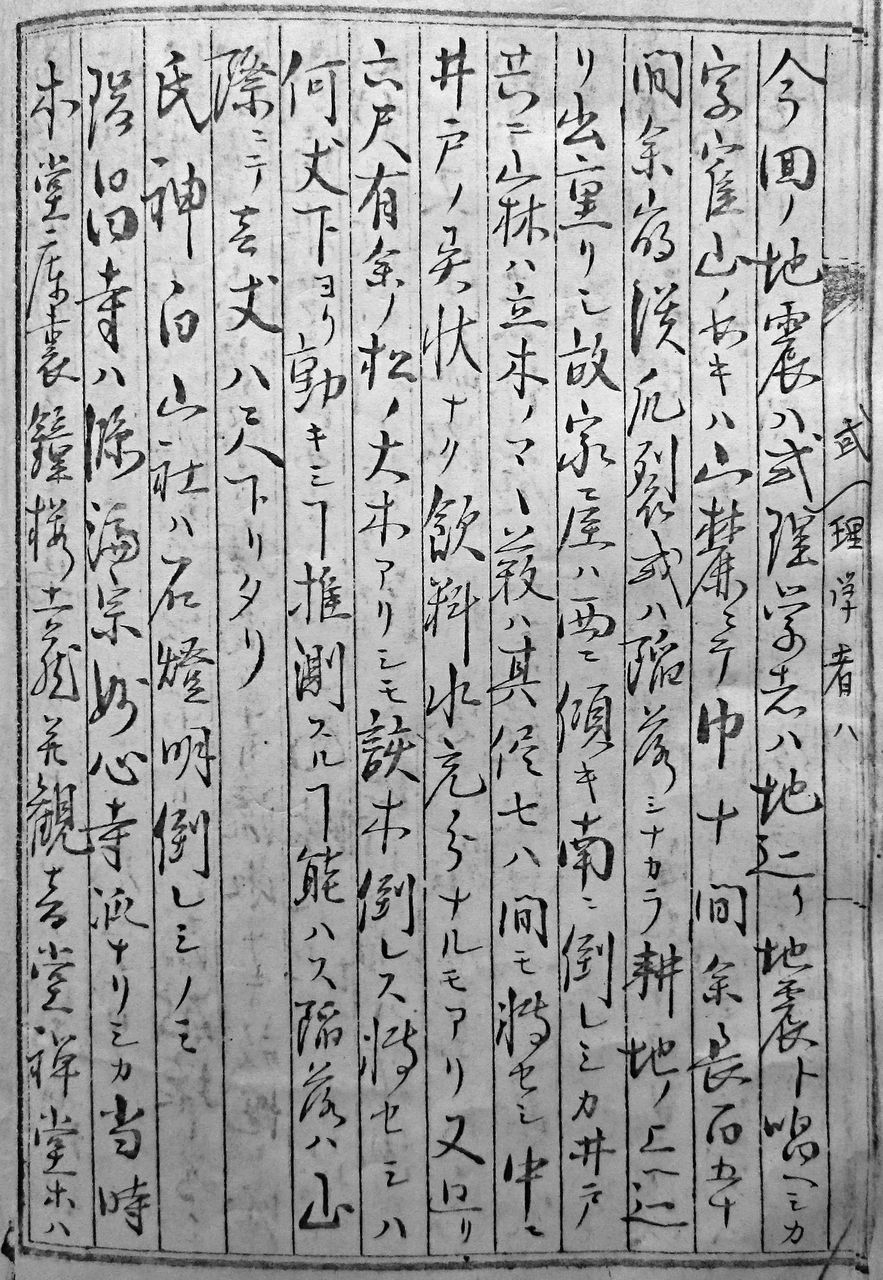 或ハ理学者ハ
今回ノ地震ハ或理学者ハ地辷リ地震ト唱ヘシカ
字崔山ノ如キハ山麓ニテ巾十間余長百五十
間余崩潰亀裂或ハ陥落シナカラ耕地ノ上ヘ辷
リ出重リシ故家屋ハ西ニ傾キ南ニ倒レシカ井戸
共ニ山林ハ立木ノマヽ薮ハ其侭七八間モ転セシ中ニ
井戸ノ異状ナク飲料水充分ナルモアリ又廻リ
六尺有余ノ松ノ大木アリシモ該木倒レス転セシハ
何丈下ヨリ動キシヿ推測スルヿ能ハス陥落ハ山
際ニテ壱丈八尺下リタリ
氏神白山社ハ石燈明倒レシノミ
陥昌寺ハ臨済宗妙心寺派ナリシカ当時
本堂庫裏鐘楼土蔵並観音堂禅堂等ハ